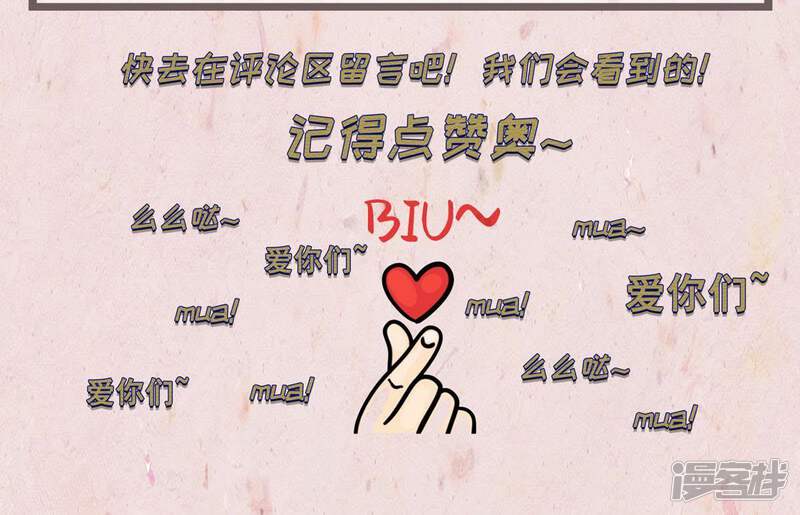 快去在评论区留言吧！ 我们会看到的！
记得点赞奥~
么么哒~
BIU~
mua~
爱你们~
爱你们~
mua!
mua!
么么哒~
爱你们~
mua!
mua!
漫客栈